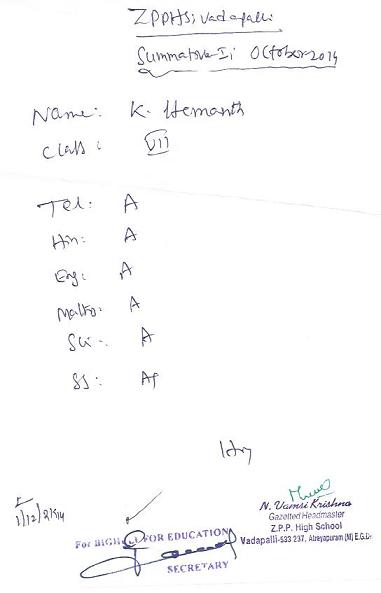 ZPPHS; Vadapalli
Summative-I; October-2014
Name: K. Hemanth
Class: VII
Tel: A
Hin: A
Eng: A
Maths: A
Sci-: A
SS: A+
N. Vamsi Krishna
Gazetted Headmaster
Z.P.P. High School
Vadapalli-533 237, Atreyapuram (M) E.G.Dt
For HIGH FOR EDUCATION
SECRETARY